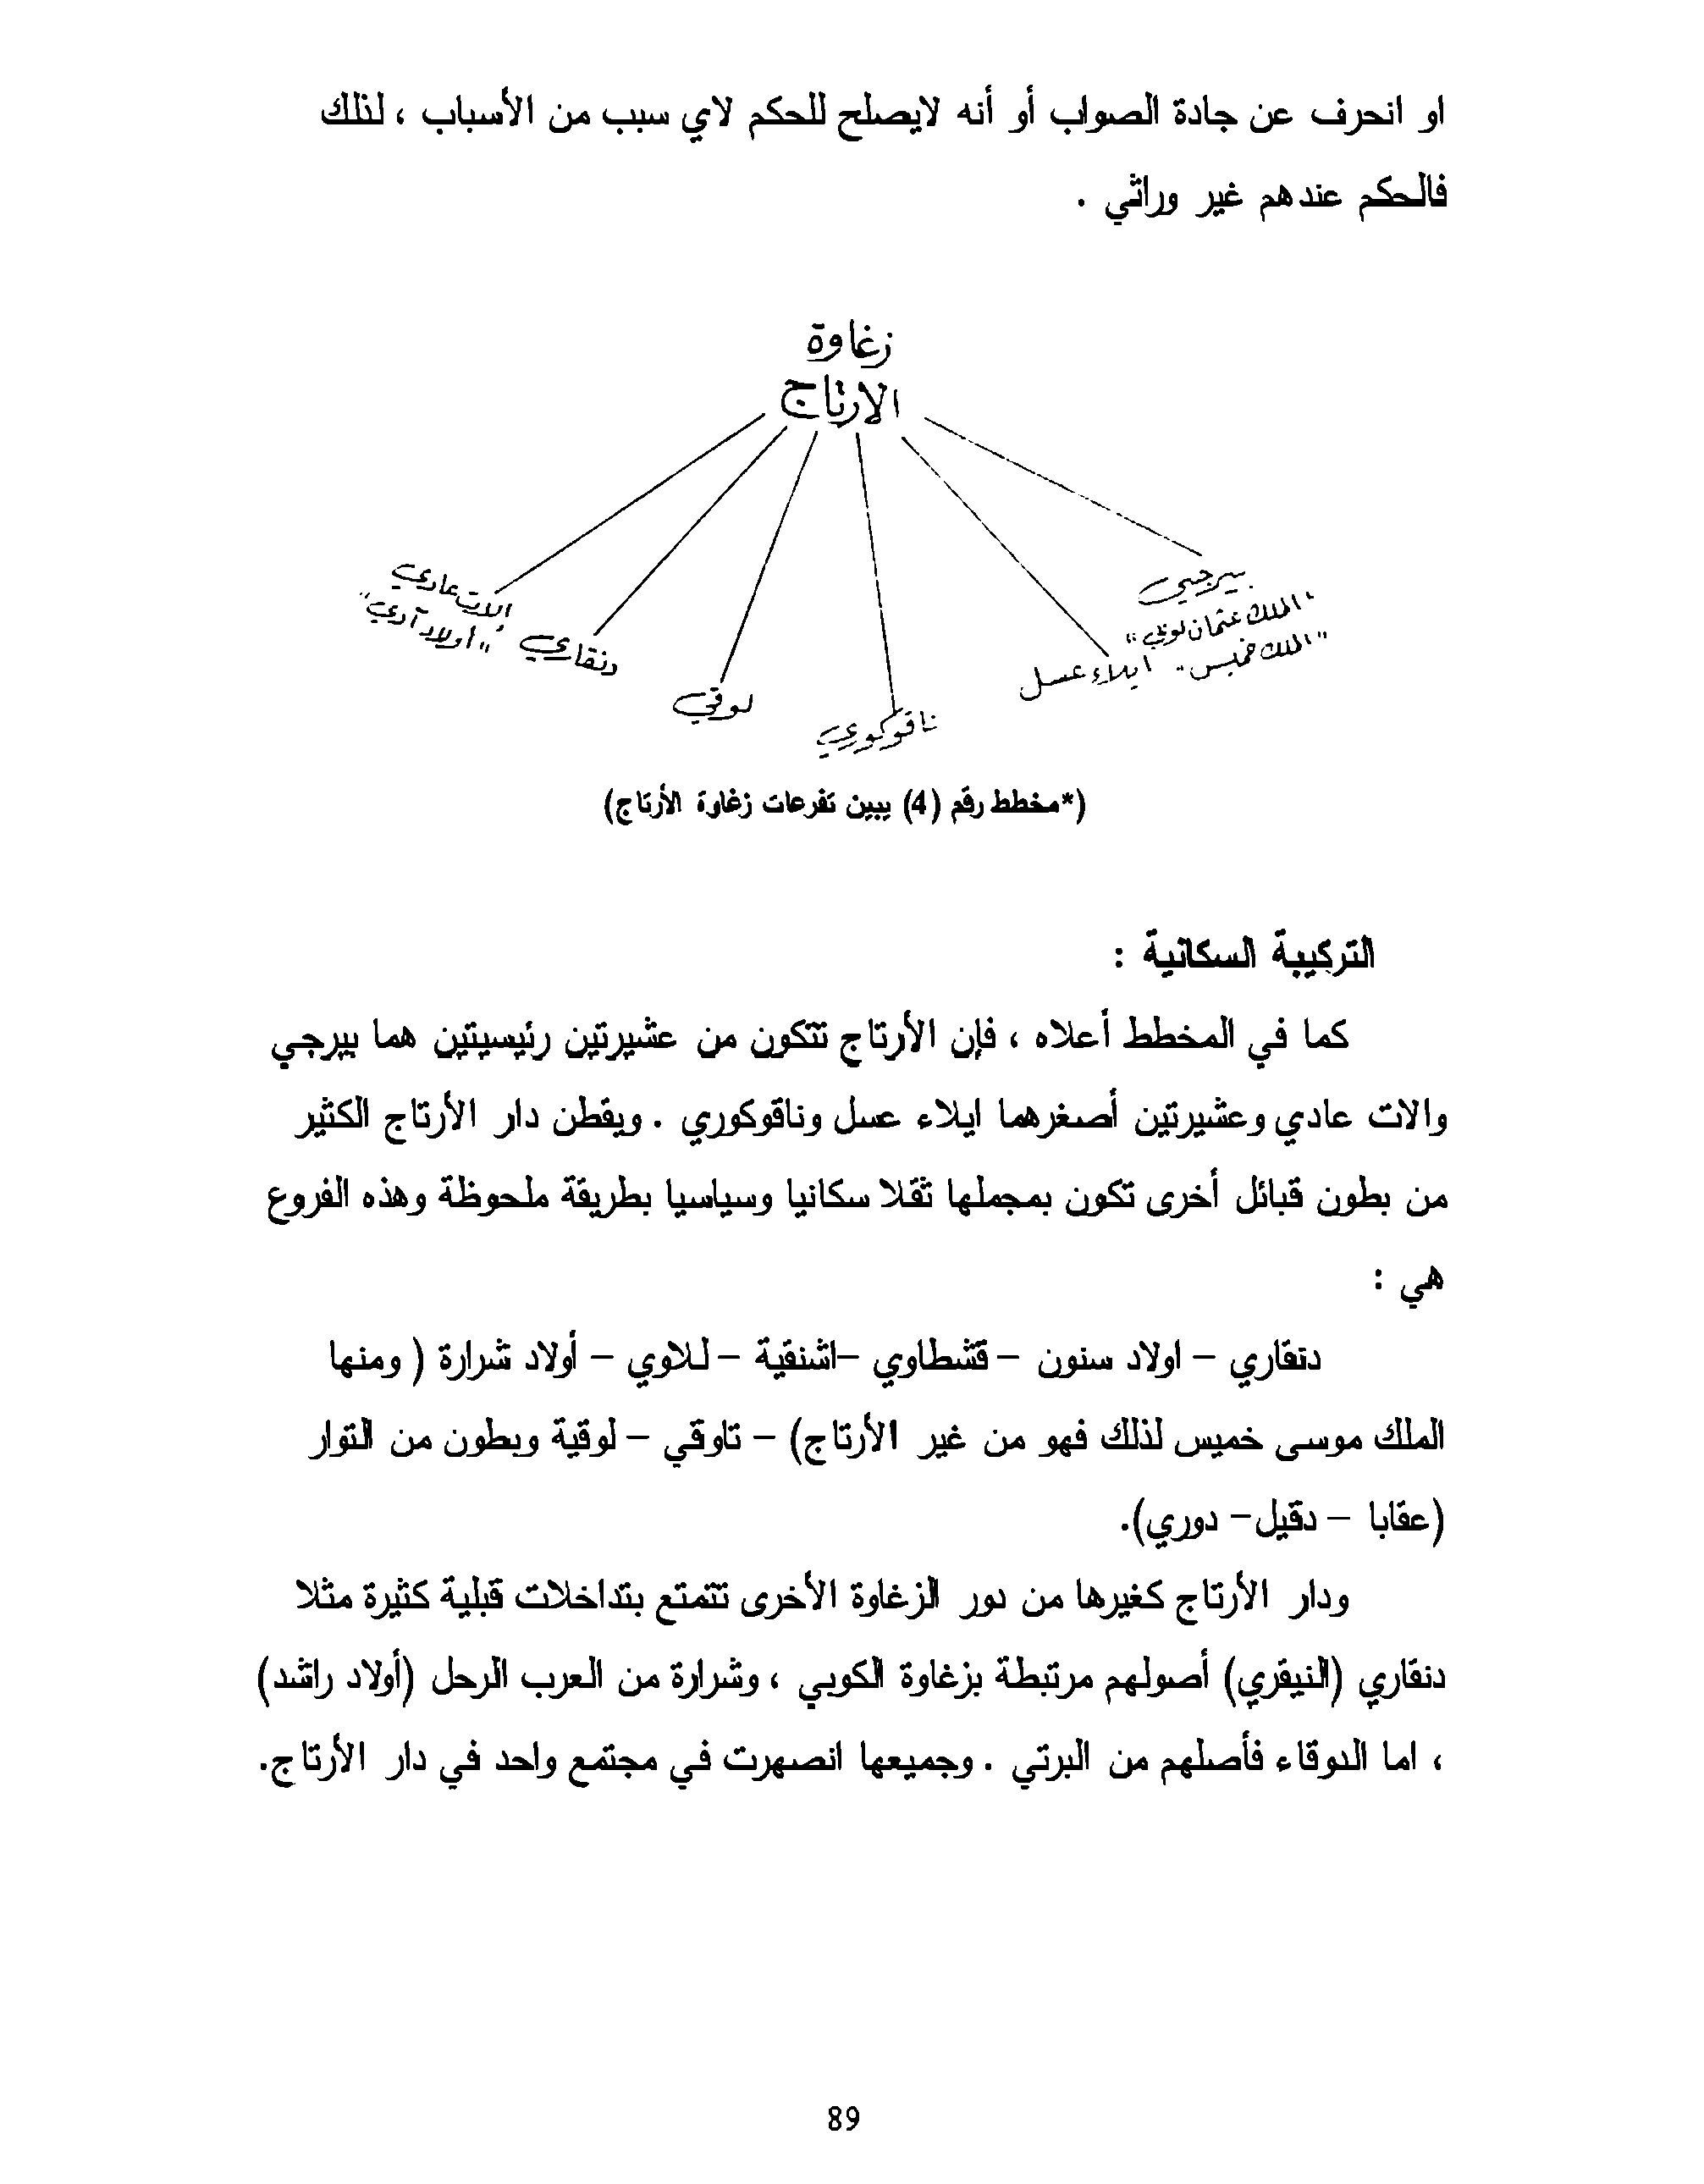 او انحرف عن جادة الصواب أو أنه لايصلح للحكم لاي سبب من الأسباب ، لذلك
فالحكم عندهم غير وراثي .
زغاوة
الارتاج
بيرجي
"الملك عثمان لوقي"
"الملك خميس"
ايلاء عسل
ناقوكوري
لوقي
دنقاري
الات عادي
"أولاد آدي"
(*مخطط رقم (4) يبين تفرعات زغاوة الأرتاج)
التركيبة السكانية :
كما في المخطط أعلاه ، فإن الأرتاج تتكون من عشيرتين رئيسيتين هما بيرجي
والات عادي وعشيرتين أصغرهما ايلاء عسل وناقوكوري . ويقطن دار الأرتاج الكثير
من بطون قبائل أخرى تكون بمجملها ثقلا سكانيا وسياسيا بطريقة ملحوظة وهذه الفروع
هي :
دنقاري – اولاد سنون – قشطاوي –اشنقية – للاوي – أولاد شرارة ( ومنها
الملك موسى خميس لذلك فهو من غير الأرتاج) – تاوقي – لوقية وبطون من التوار
(عقابا – دقيل– دوري).
ودار الأرتاج كغيرها من دور الزغاوة الأخرى تتمتع بتداخلات قبلية كثيرة مثلا
دنقاري (النيقري) أصولهم مرتبطة بزغاوة الكوبي ، وشرارة من العرب الرحل (أولاد راشد)
، اما الدوقاء فأصلهم من البرتي . وجميعها انصهرت في مجتمع واحد في دار الأرتاج.
89